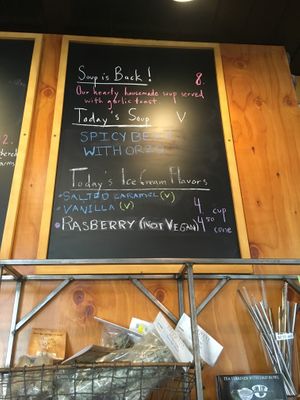 Soup is Back! 8.
Our hearty housemade soup served
with garlic toast
Today's Soup V
SPICY BEET
WITH ORZO
Today's Ice Cream Flavors
• SALTED CARAMEL (V)
• VANILLA (V)
• RASBERRY (NOT VEGAN)
4 cup
4 50 cone
2.